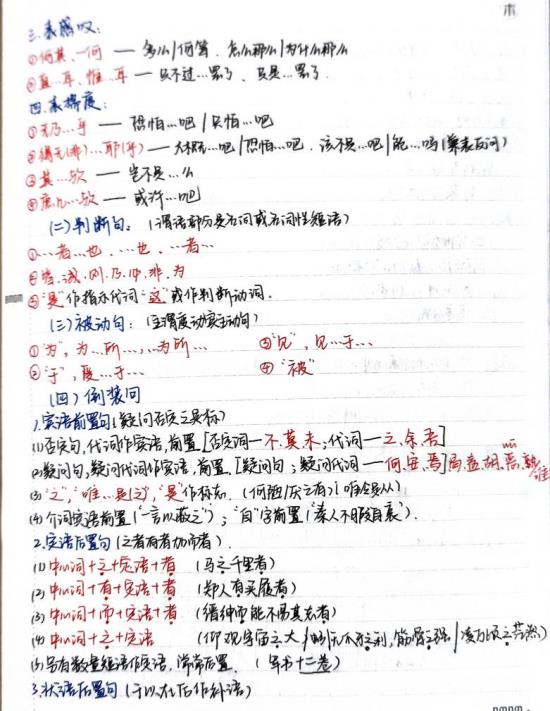 木
三.表感叹:
①何其、一何 — 多么/何等、怎么那么/为什么那么
②直…耳、惟…耳 — 只不过…罢了、只是…罢了
四.表揣度:
①无乃…乎 — 恐怕…吧/只怕…吧
②得无(非)…耶(乎) — 大概…吧/恐怕…吧、该不是…吧/能…吗(兼表反问)
③其…欤 — 岂不是…么
④庶几…欤 — 或许…吧
(二)判断句:(谓语部分是名词或名词性短语)
①…者…也、…也、…者…
②皆、诚、则、乃、必、非、为
③"是"作指示代词"这"或作判断动词.
(三)被动句:(主谓是动宾主动句)
①"为",为…所…,…为所…
③"见",见…于…
②"于",受…于…
④"被"
(四)倒装句
1.宾语前置句(疑问否定之是标)
(1)否定句,代词作宾语,前置[否定词—不、莫、未;代词—之、余、吾]
(2)疑问句,疑问代词作宾语,前置.[疑问句;疑问代词—何、安、焉]曷、盍、胡、恶、孰、谁
wū
(3)"之","唯…是(之)","是"作标志.(何陋之有)(唯命是从)
(4)介词宾语前置("一言以蔽之");"自"字前置("秦人不暇自哀").
2.定语后置句(之者有者加而者).
(1)中心词+之+定语+者 (马之千里者)
(2)中心词+有+定语+者 (郑人有买履者)
(3)中心词+而+定语+者 (缙绅而能不易其志者)
(4)中心词+之+定语 (仰观宇宙之大/蚓无爪牙之利,筋骨之强/凌万顷之茫然)
(5)若有数量短语作定语,常常后置. (军书十二卷)
3.状语后置句(于以在后作补语)